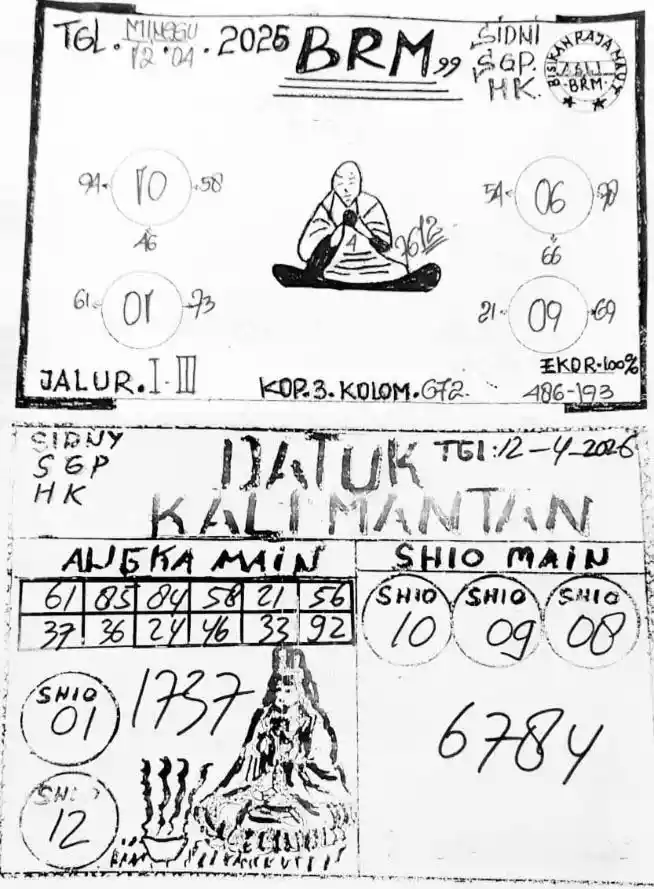 TGL. MINGGU 12.04.2026
BRM.99
SIDNI
SGP.
HK.
BISIKAN RAJA MAUT
ASLI
BRM
94 10 58
46
61 01 73
54 06
66
21 09 69
4
2612
EKOR.100%
JALUR.I.III
KOP.3.KOLOM.672.
486-193
SIDNY
SGP
HK
DATUK
KALIMANTAN
TGl:12-4-2026
ANGKA MAIN
61 85 84 58 21 56
37 36 24 46 33 92
SHIO MAIN
SHIO 10
SHIO 09
SHIO 08
SHIO 01
1737
SHIO 12
6784